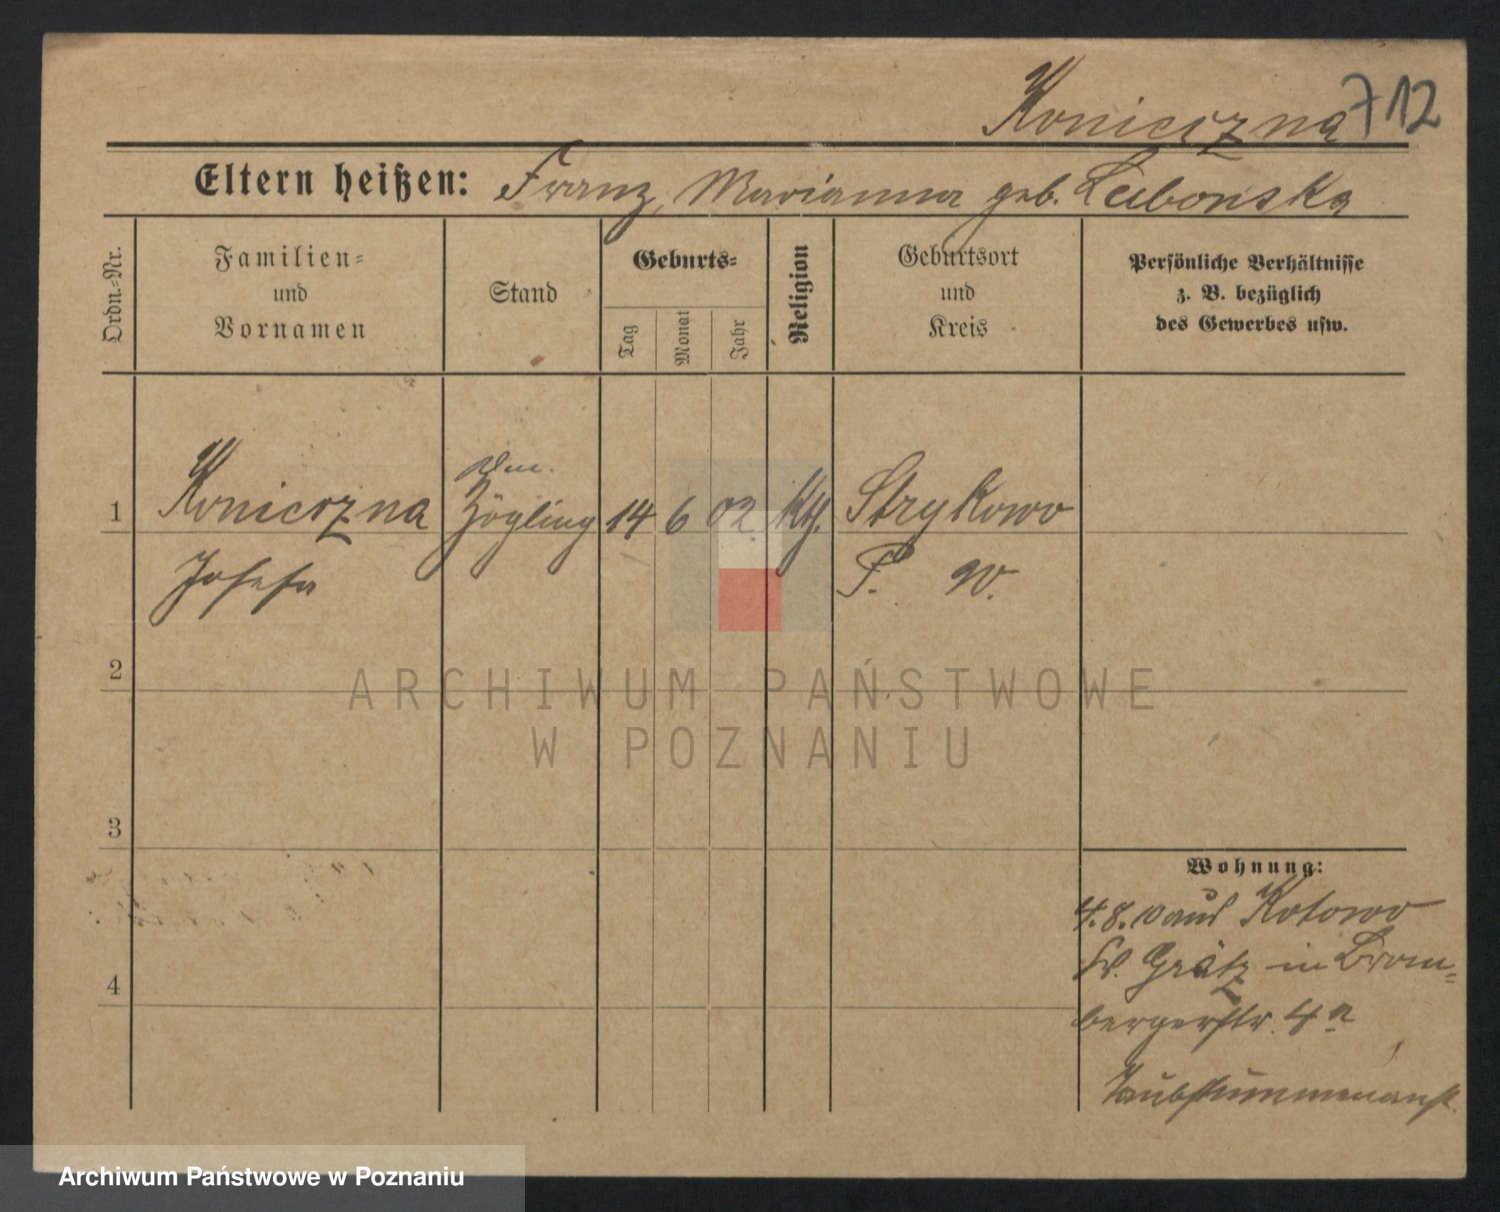 Konieczna 712
Eltern heißen: Franz, Marianna geb. Lubonska
Ordn.-Nr.
Familien-
und
Vornamen
Stand
Geburts-
Tag
Monat
Jahr
Religion
Geburtsort
und
Kreis
Persönliche Verhältnisse
z. B. bezüglich
des Gewerbes usw.
1 Konieczna Zögling 14 6 02 kth. Strykowo
Josefa P. W.
2
3
4
Wohnung:
4.8.10 aus Kotowo
Kr. Grätz in Brom-
bergerstr. 4a
Taubstummenanst.
ARCHIWUM PAŃSTWOWE
W POZNANIU
Archiwum Państwowe w Poznaniu